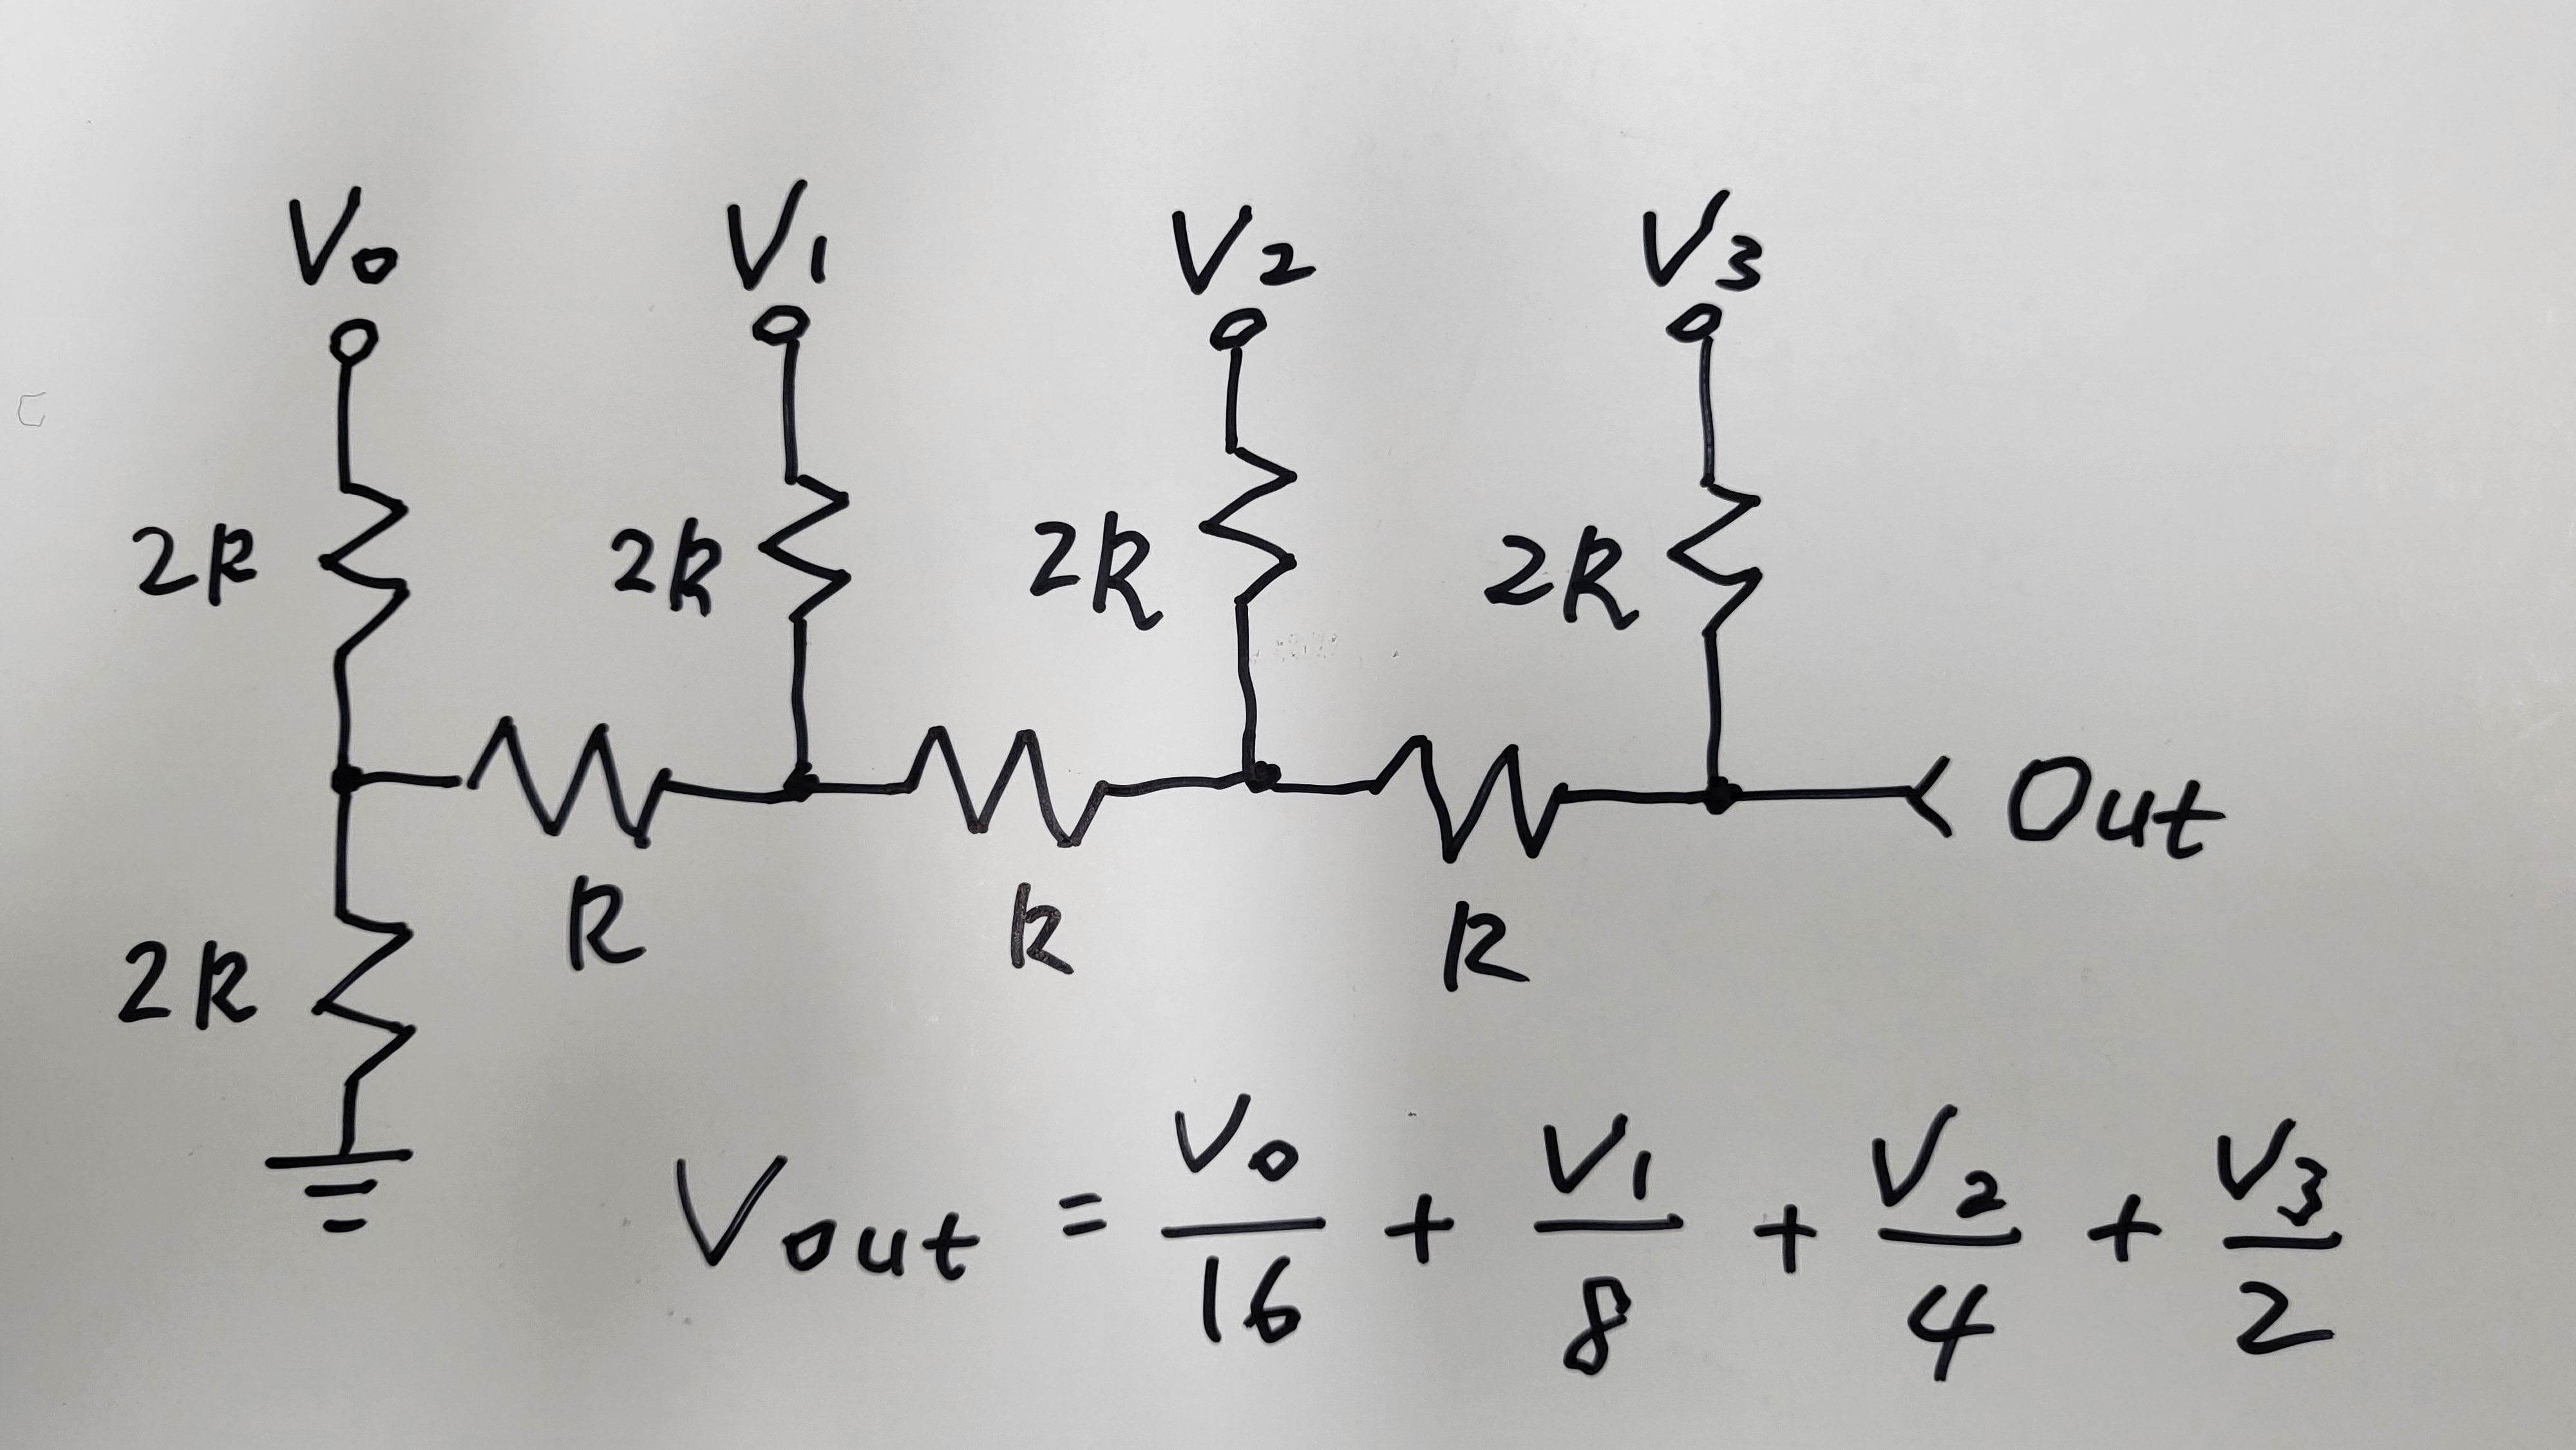 V0 V1 V2 V3
2R 2R 2R 2R
Out
R R R
2R
Vout = V0/16 + V1/8 + V2/4 + V3/2